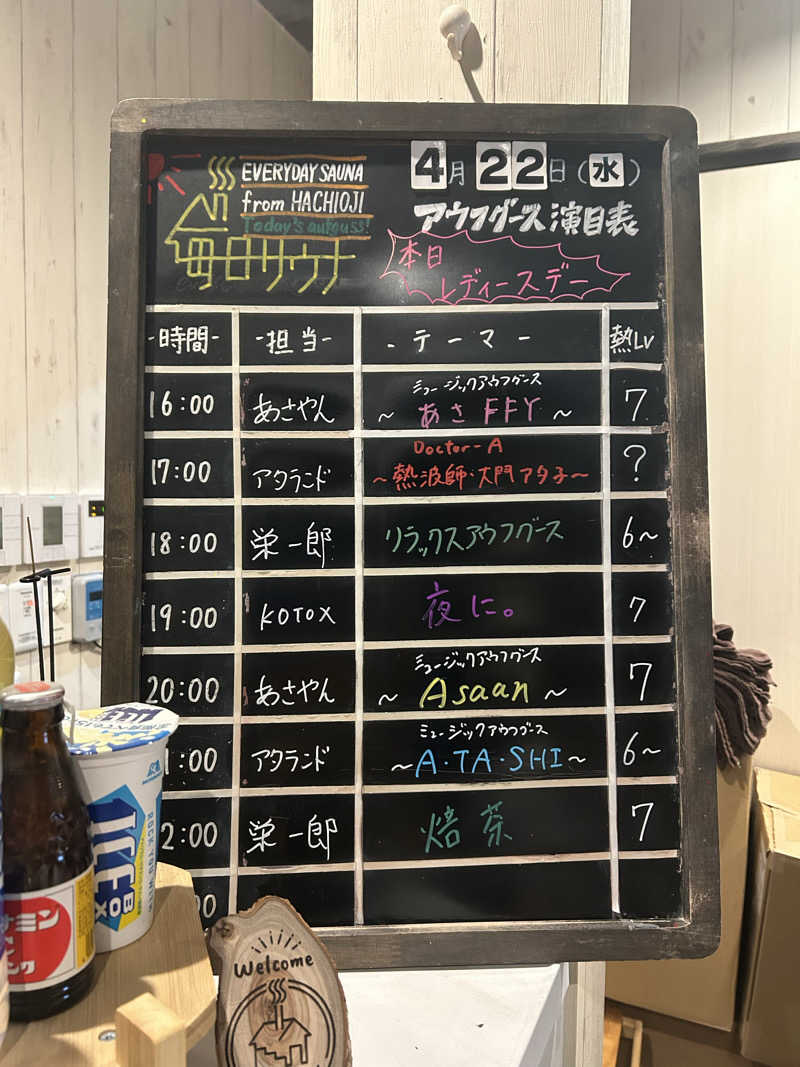 EVERYDAY SAUNA
from HACHIOJI
Today's aufguss!
毎日サウナ
4月22日(水)
アウフグース演目表
本日
レディースデー
-時間- -担当- -テーマ- 熱Lv
16:00 あさやん ミュージックアウフグース ~あさFFY~ 7
17:00 アタランド Doctor-A ~熱波師・大門アタ子~ ?
18:00 栄一郎 リラックスアウフグース 6~
19:00 KOTOX 夜に。 7
20:00 あさやん ミュージックアウフグース ~Asaan~ 7
1:00 アタランド ミュージックアウフグース ~A・TA・SHI~ 6~
2:00 栄一郎 焙茶 7
00
ICE BOX
Welcome